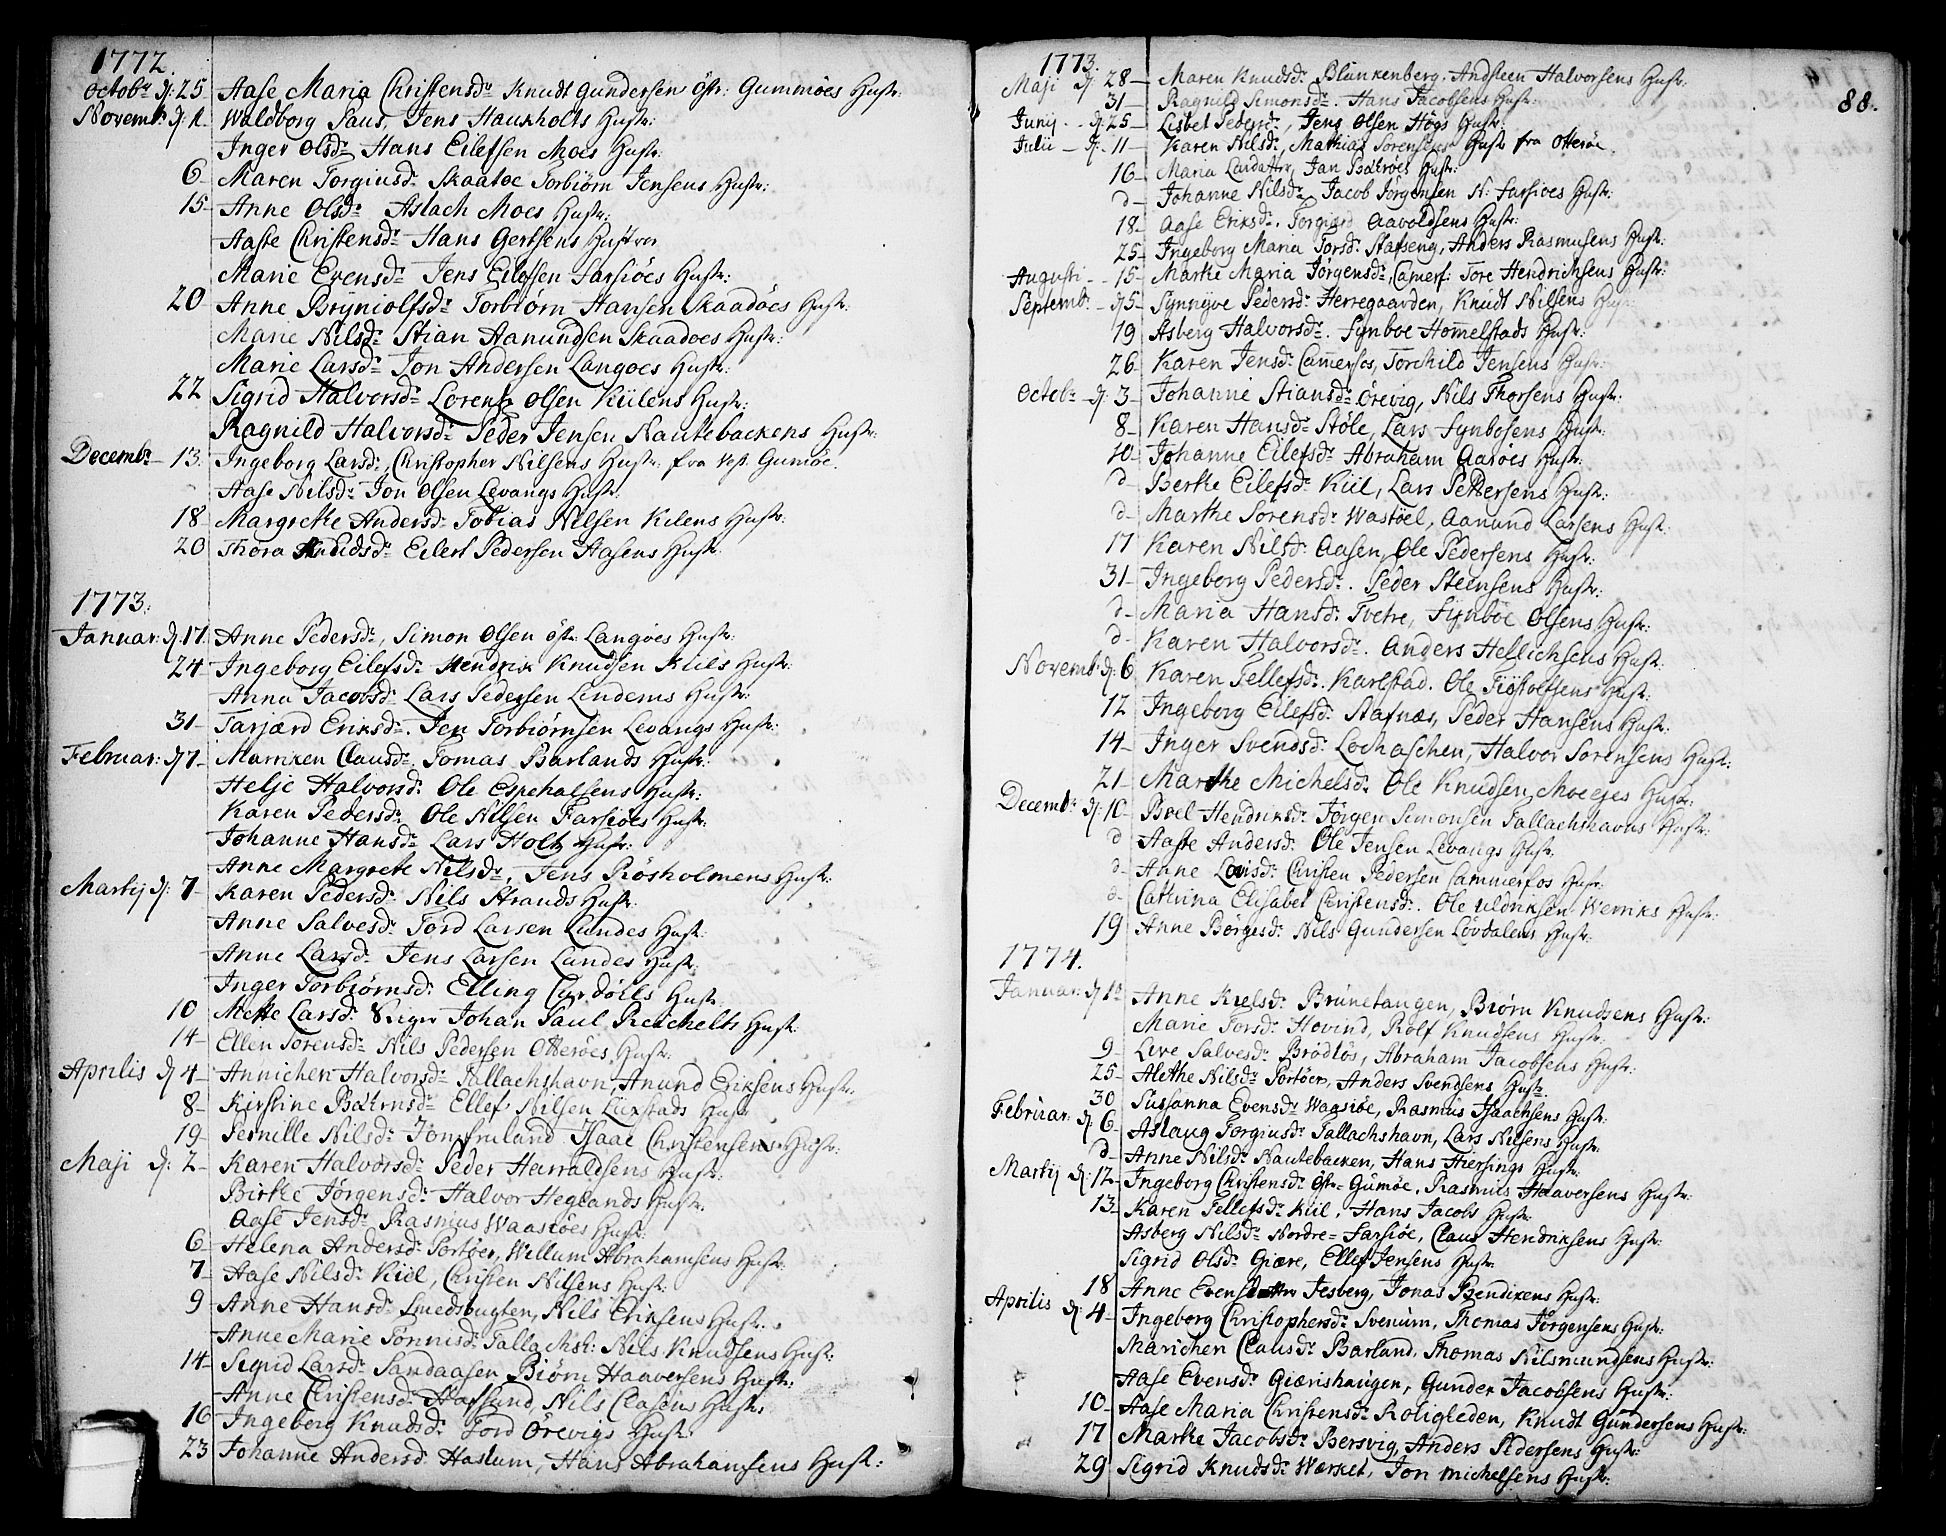 1772.
Octobr d: 25 Aase Maria Christensdr Knudt Gundersens östr: Gummöes Hustr:
Novembr d: 1. Waldborg Saus, Jens Hauxholts Hustr:
Inger Olsdr Hans Eilefsen Moes Hustr:
6 Maren Torgiusdr Skaatöe Torbiörn Jensens Hustr:
15 Anne Olsdr Aslach Moes Hustr:
Aaste Christensdr Hans Gertsens Hustroe
Marie Evensdr Jens Eilefsen Farsiöes Hustr:
20 Anne Bryniolfsdr Torbiörn Hansen Skaadöes Hustr:
Marie Nilsdr Stian Aanundsen Skaadoes Hustr:
Marie Larsdr Jon Andersen Langoes Hustr:
22 Sigrid Halvorsdr Lorentz Olsen Kiilens Hustr:
Ragnild Halvorsdr Peder Jensen Nautebackens Hustr:
Decembr 13. Ingeborg Larsdr, Christopher Nilsens Hustr: fra Vest Gumöe.
Aase Nilsdr Jon Olsen Levangs Hustr:
18 Margrethe Andersdr Tobias Nilsen Kilens Hustr:
20 Thora Knudsdr Eilert Pedersen Aasens Hustr:
1773.
Januar: d. 17. Anne Pedersdr, Simon Olsen östr: Langöes Hustr:
24 Ingeborg Eilefsdr Hendrik Knudsen Kiils Hustr:
Anna Jacobsdr Lars Pedersen Lindems Hustr:
31 Tarjærd Eriksdr. Jen Torbiörnsen Levangs Hustr:
Februar: d 7 Marriken Clausdr Tomas Barlands Hustr:
Helje Halvorsdr Ole Espehalsens Hustr:
Karen Pedersdr Ole Nilsen Farsiöes Hustr:
Johanne Hansdr Lars Holts Hustr:
Anne Margrete Nilsdr, Jens Rösholmens Hustr:
Martij d: 7 Karen Pedersdr Nils Strands Hustr:
Anne Salvesdr Tord Larsen Lundes Hustr:
Anne Larsdr Jens Larsen Landes Hustr:
Inger Torbiörnsdr Elling Hustr:
10 Mette Larsdr Johan Paul Reichelts Hustr:
14 Ellen Sörensdr Nils Pedersen Otteröes Hustr:
Aprilis d 4 Annichen Halvorsdr Tallachshavn Anund Eriksens Hustr.
8 Kirstine Ellef Nilsen Hustr
19 Pernille Nilsdr Isaac Christensens Hustr:
Maji d: 2 Karen Halvorsdr Peder Harraldsens Hustr:
Birthe Jörgensdr Halvor Heglands Hustr:
Aase Jensdr Rasmus Waasiöes Hustr:
6 Helena Andersdr Portöer, Willum Abrahamsens Hustr:
7 Aase Nilsdr Kiil, Christen Nilsens Hustr:
9 Anne Hansdr Smedsbugten, Nils Eriksens Hustr:
Anne Marie Tönnisdr Tallachsh: Nils Knudsens Hustr:
14 Sigrid Larsdr Sandaasen Biörn Haaversens Hustr:
Anne Christensdr Hafsund, Nils Clasens Hustr:
16 Ingeborg Knudsdr Tord Örevigs Hustr:
23 Johanne Andersdr Haslum, Hans Abrahamsens Hustr:
88.
1773.
Maji d: 28 Maren Knudsdr Blankenberg. Andsteen Halvorsens Hustr:
31 Ragnild Simonsdr. Hans Jacobsens Hustr:
Junij d: 25 Lisbet Pedersdr, Jens Olsen Högs Hustr:
Julii d: 11 Karen Nilsdr, Mathias Sörensens Hustr fra Otteröe.
16 Maria Jan Hustr:
d Johanne Nilsdr Jacob Jörgensen N: Farsiöes Hustr:
18 Aase Eriksdr. Torgierd Aavoldsens Hustr:
25 Ingeborg Maria Torsdr Stafseng, Anders Rasmusens Hustr:
Augusti 15 Marthe Maria Jörgensdr Camerf: Tore Hendrichsens Hustr:
Septembr d 5 Synnöve Pedersdr Herregaarden, Knudt Nilsens Hustr:
19 Asberg Halvorsdr. Synboe Hom̄elstads Hustr:
26 Karen Jensdr Cam̄erfos, Torchild Jensens Hustr:
Octobr d: 3 Johanne Stiansdr Örevig, Nils Thorsens Hustr:
8 Karen Hansdr Stöle, Lars Synbosens Hustr:
10 Johanne Eilefsdr Abraham Aaröes Hustr:
d Berthe Eilefsdr Kiil, Lars Pettersens Hustr:
d Marthe Sörensdr Wastöel, Aanund Larsens Hustr:
17 Karen Nilsdr Aasen, Ole Pedersens Hustr:
31 Ingeborg Pedersdr. Peder Steensens Hustr:
d Maria Hansdr Tvetre, Synböe Olsens Hustr:
d Karen Halvorsdr. Anders Hellichsens Hustr:
Novembr d: 6 Karen Tellefsdr. Karlstad. Ole Tiöstolfsens Hustr:
12 Ingeborg Eilefsdr Stafnæs, Peder Hansens Hustr:
14 Inger Svendsdr Lochaschen, Halvor Sörensens Hustr:
21 Marthe Michelsdr Ole Knudsen Moeejes Hustr:
Decembr d: 10 Boel Hendriksdr Jörgen Simonsen Tallachshavns Hustr:
d Aaste Andersdr Ole Jensen Levangs Hustr:
d Anne Christen Pedersen Cammerfos Hustr:
d Cathrina Elisabet Christensdr. Ole Uldriksen Werriks Hustr:
19 Anne Börgesdr Nils Gundersen Lövdalens Hustr:
1774.
Januar: d 1 Anne Kielsdr Brunetangen, Biörn Knudsens Hustr:
Marie Torsdr Hovind, Rolf Knudsens Hustr:
9 Live Salvesdr Brödlös, Abraham Jacobsens Hustr:
25 Alethe Nilsdr Portöer, Anders Svendsens Hustr:
30 Susanna Evensdr Waasiöe, Rasmus Isaachsens Hustr:
Februar: d 6 Aslaug Torgiusdr Tallachshavn, Lars Nilsens Hustr:
d Anne Nilsdr Nautebacken, Hans Hiersings Hustr:
Martij d: 12 Ingeborg Christensdr Östr Gumöe, Rasmus Haaversens Hustr:
13 Karen Tellefsdr Kiil, Hans Jacobs Hustr:
Asberg Nilsdr Nordre Farsiöe, Claus Hendriksens Hustr:
Sigrid Olsdr Giære, Ellef Jensens Hustr:
18 Anne Jesberg, Jonas Bendixens Hustr:
Aprilis d: 4 Ingeborg Christophersdr Svenum, Thomas Jörgensens Hustr:
Marichen Clausdr Barland, Thomas Nilsmundsens Hustr:
Aase Evensdr Giærishaugen, Gunder Jacobsens Hustr:
10 Aase Maria Christensdr Roligleden, Knudt Gundersens Hustr:
17 Marthe Jacobsdr Bersvig, Anders Pedersens Hustr:
29 Sigrid Knudsdr Wærslet, Jon Michelsens Hustr: